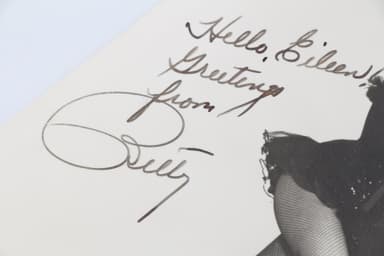 Hello, Eileen,
Greetings
from
Betty